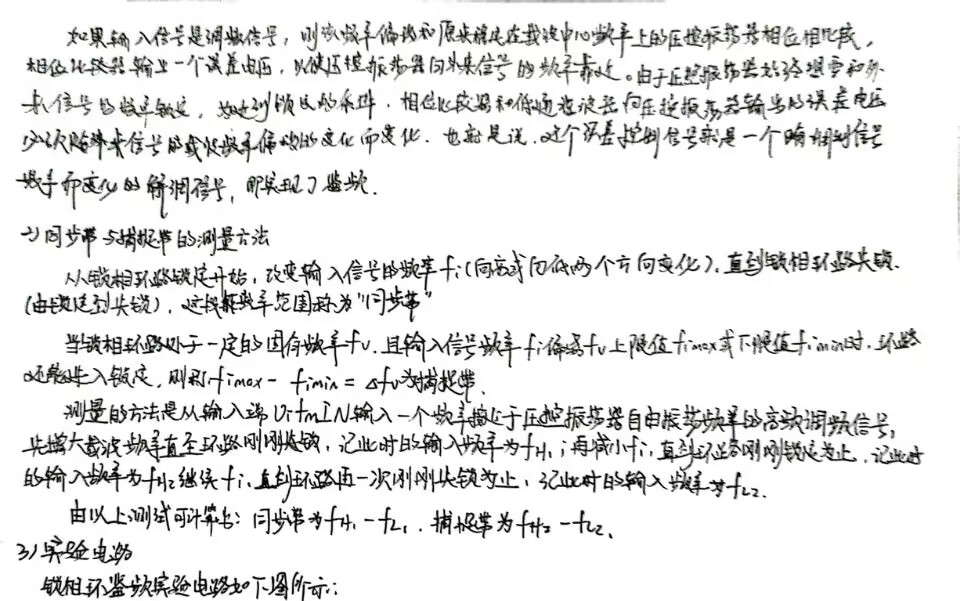 如果输入信号是调频信号，则该频率偏移和原来稳定在载波中心频率上的压控振荡器相位相比较，
相位比较器输出一个误差电压，以使压控振荡器向外来信号的频率靠近。由于压控振荡器始终想要和外
来信号的频率锁定，为达到锁定的条件，相位比较器和低通滤波器向压控振荡器输出的误差电压
必须随外来信号的载波频率偏移的变化而变化．也就是说，这个误差控制信号就是一个随调制信号
频率而变化的解调信号，即实现了鉴频．
2)同步带与捕捉带的测量方法
从锁相环路锁定开始，改变输入信号的频率fi(向高或向低两个方向变化)，直到锁相环路失锁
(由锁定到失锁)，这段频率范围称为"同步带"
当锁相环路处于一定的固有频率fv，且输入信号频率fi偏离fv上限值fimax或下限值fimin时，环路
还能进入锁定，则称fimax - fimin = Δfv为捕捉带．
测量的方法是从输入端 IN输入一个频率接近于压控振荡器自由振荡频率的高频调频信号，
先增大载波频率直至环路刚刚失锁，记此时的输入频率为fH1；再减小fi，直到环路刚刚锁定为止，记此时
的输入频率为fH2继续fi，直到环路再一次刚刚失锁为止，记此时的输入频率为fL2．
由以上测试可计算出：同步带为fH1 - fL1．捕捉带为fH2 - fL2．
3)实验电路
锁相环鉴频实验电路如下图所示：